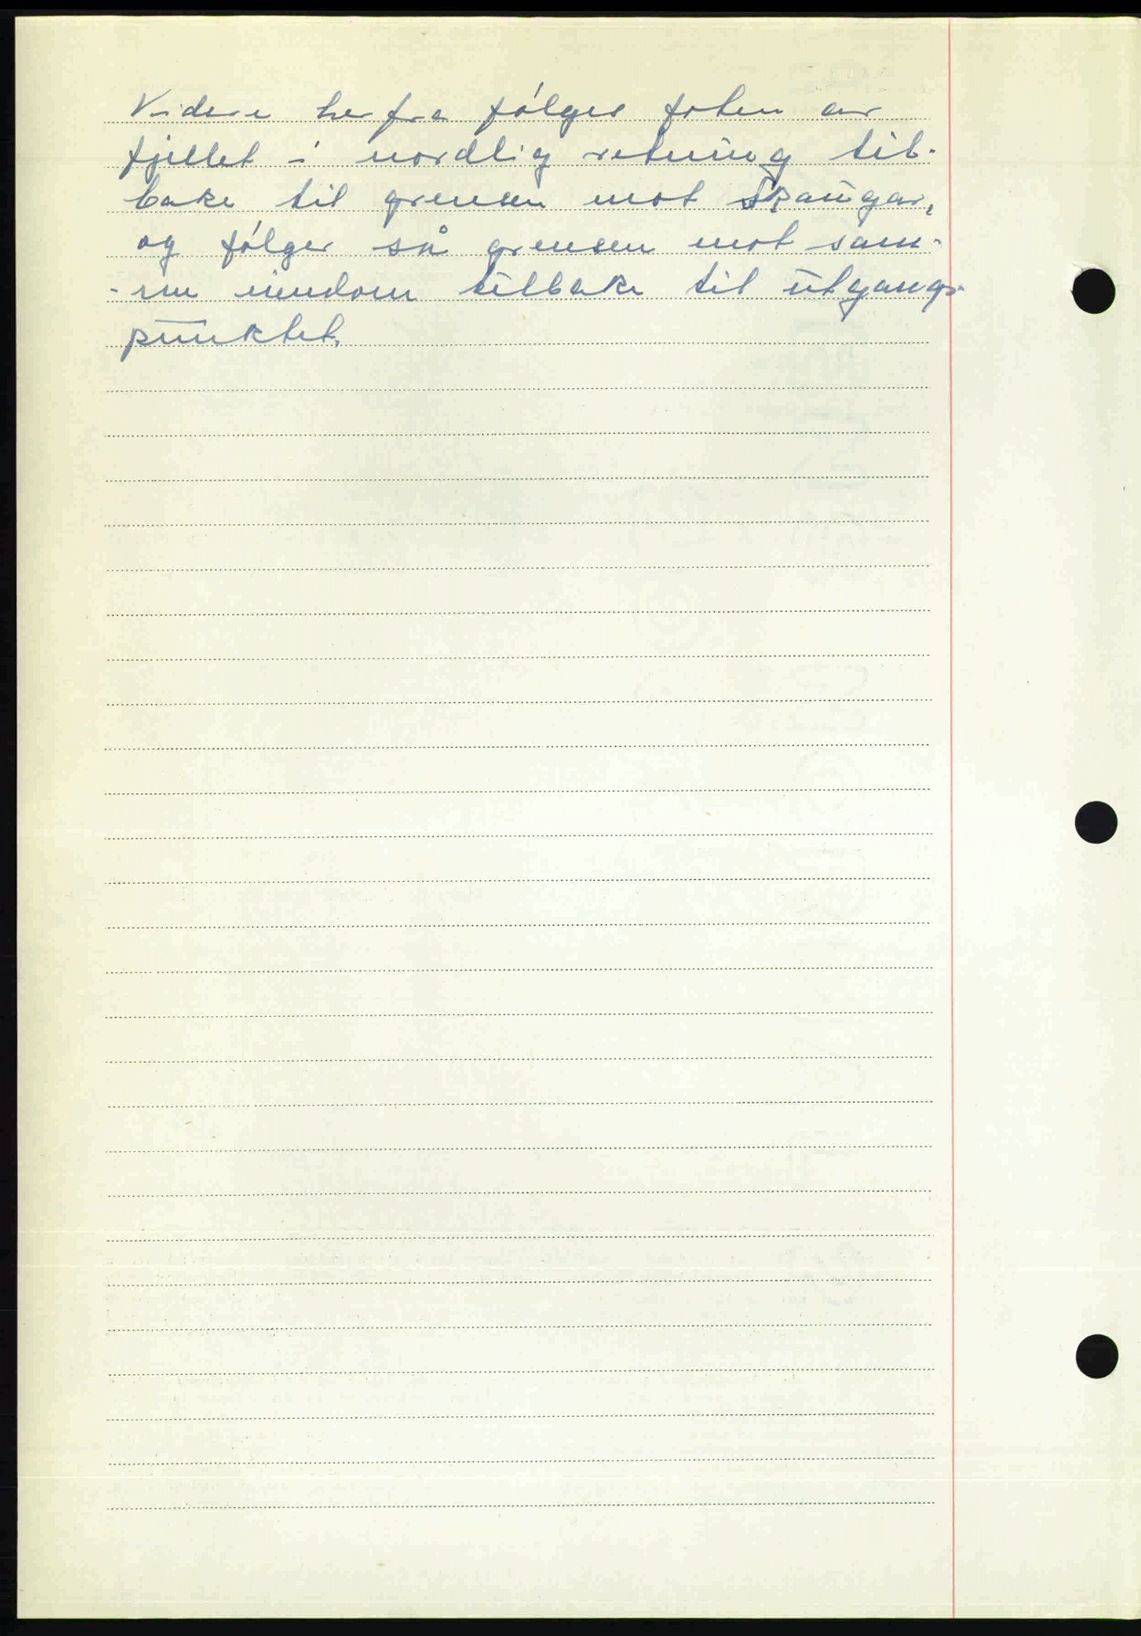 Videre herfra følges foten av
fjellet i nordlig retning til-
bake til grensen mot Skaugar,
og følger så grensen mot sam-
-me eiendom tilbake til utgangs-
punktet.